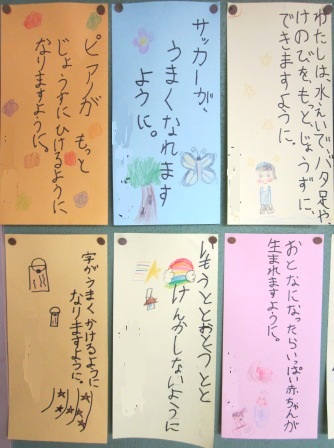 わたしは水えいで、バタ足や
けのびを、もっとじょうずに、
できますように。
サッカーが、
うまくなれます
ように。
ピアノが もっと
じょうずにひけるように
なりますように。
おとなになったらいっぱい赤ちゃんが
生まれますように。
いもうととおとうとと
けんかしないように
字がうまくかけるように
なりますように。